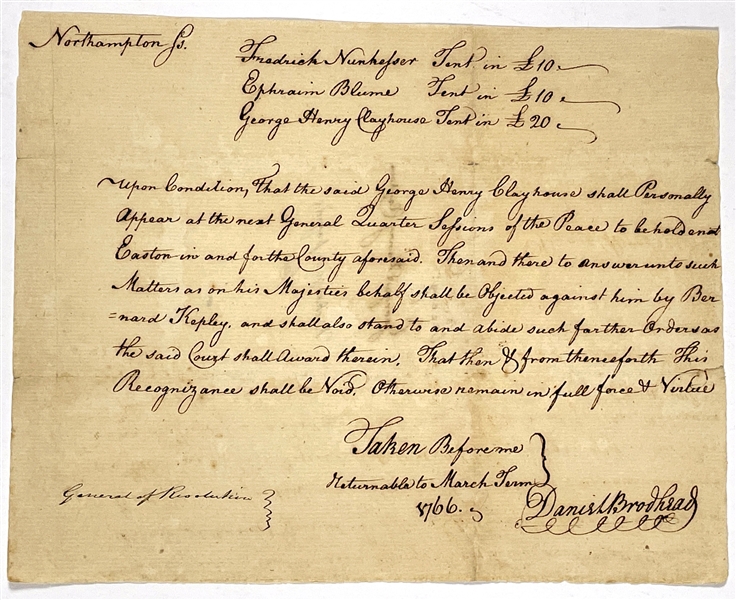 Northampton Ss.
Fredrick Nunhesser Tent in £10.
Ephraim Blume Tent in £10
George Henry Clayhouse Tent in £20
Upon Condition, That the said George Henry Clayhouse shall Personally
Appear at the next General Quarter Sessions of the Peace to be holden at
Easton in and for the County aforesaid. Then and there to answer unto such
Matters as on his Majesties behalf shall be Objected against him by Ber
=nard Kepley, and shall also stand to and abide such farther Orders as
the said Court shall Award therein. That then & from thenceforth This
Recognizance shall be Void. Otherwise remain in full force & Virtue
Taken Before me
Returnable to March Term
1766.
Daniel Brodhead
General of Revolution